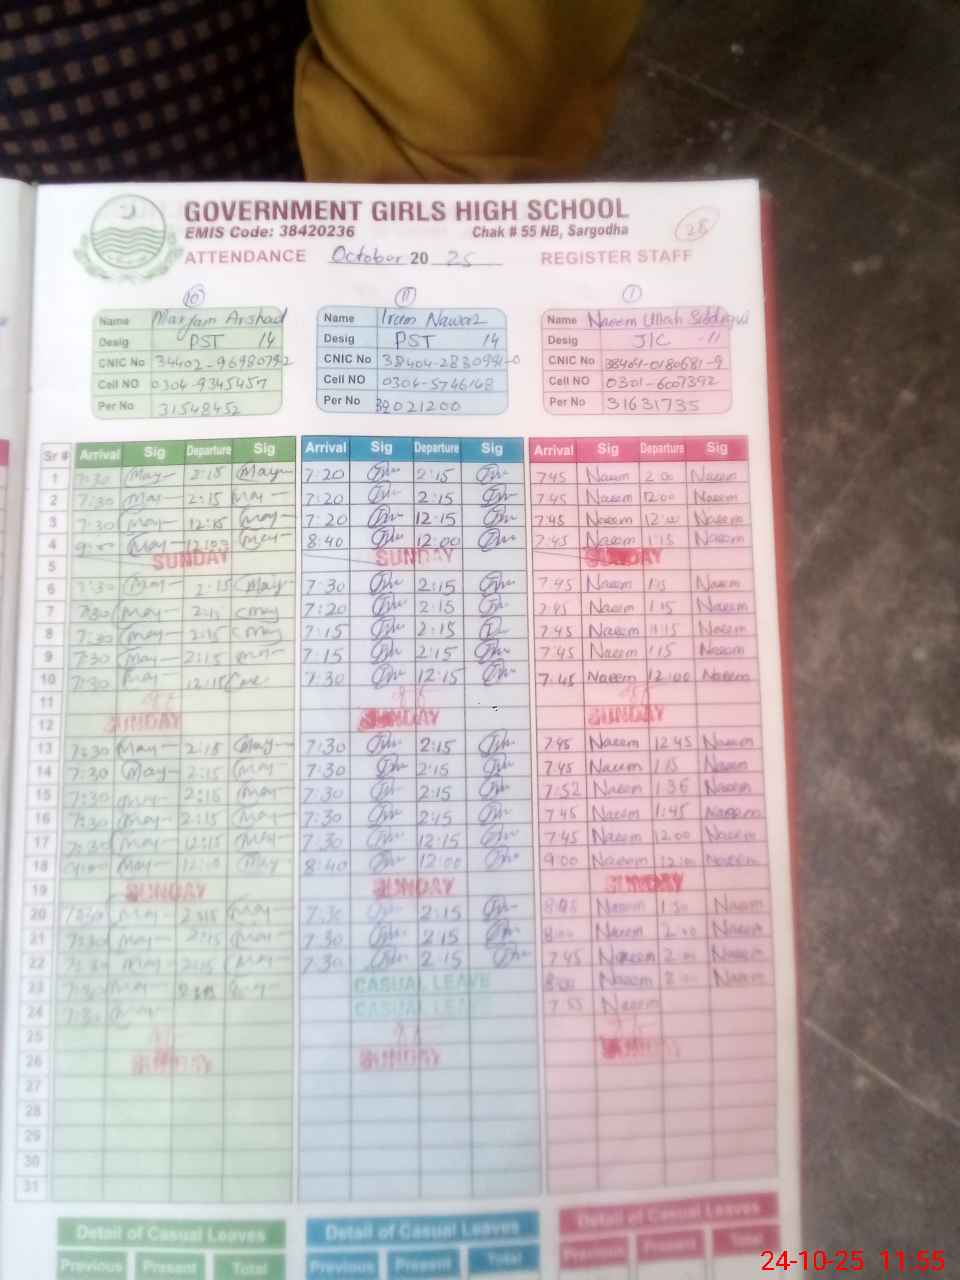 GOVERNMENT GIRLS HIGH SCHOOL
EMIS Code: 38420236 Chak # 55 NB, Sargodha
28
ATTENDANCE October 20 25 REGISTER STAFF
10 11 1
Name Maryam Arshad Name Iram Nawaz Name Naeem Ullah Siddiqui
Desig PST 14 Desig PST 14 Desig JIC -11
CNIC No 34402-9698079-2 CNIC No CNIC No
Cell NO 0304-9345457 Cell NO 0304-5746148 Cell NO 0301-6007392
Per No 31548452 Per No Per No 31631735
Sr # Arrival Sig Departure Sig Arrival Sig Departure Sig Arrival Sig Departure Sig
1 7:30 May 2:15 May 7:20 2:15 7:45 Naeem 2:00 Naeem
2 7:30 May 2:15 May 7:20 2:15 7:45 Naeem 12:00 Naeem
3 7:30 May 12:15 May 7:20 12:15 7:45 Naeem 12:00 Naeem
4 9:00 May 12:00 May 8:40 12:00 7:45 Naeem 1:15 Naeem
5 SUNDAY SUNDAY SUNDAY
6 7:30 May 2:15 May 7:30 2:15 7:45 Naeem Naeem
7 7:30 May 2:15 May 7:20 2:15 7:45 Naeem 1:15 Naeem
8 7:30 May 2:15 May 7:15 2:15 7:45 Naeem 1:15 Naeem
9 7:30 May 2:15 May 7:15 2:15 7:45 Naeem 1:15 Naeem
10 7:30 May 12:15 7:30 12:15 7:45 Naeem 12:00 Naeem
11
12 SUNDAY SUNDAY SUNDAY
13 7:30 May 2:15 May 7:30 2:15 7:45 Naeem 12:45 Naeem
14 7:30 May 2:15 May 7:30 2:15 7:45 Naeem 1:15 Naeem
15 7:30 May 2:15 May 7:30 2:15 7:52 Naeem 1:36 Naeem
16 7:30 May 2:15 May 7:30 2:15 7:45 Naeem 1:45 Naeem
17 7:30 May 12:15 May 7:30 12:15 7:45 Naeem 12:00 Naeem
18 May May 8:40 12:00 9:00 Naeem 12:00 Naeem
19 SUNDAY SUNDAY SUNDAY
20 7:30 May 2:15 May 7:30 2:15 8:45 Naeem 1:30 Naeem
21 7:30 May 2:15 May 7:30 2:15 8:00 Naeem 2:00 Naeem
22 7:30 May 2:15 May 7:30 2:15 7:45 Naeem 2:00 Naeem
23 7:30 May CASUAL LEAVE 8:00 Naeem Naeem
24 7:30 May CASUAL LEAVE 7:55 Naeem
25
26 SUNDAY SUNDAY SUNDAY
27
28
29
30
31
Detail of Casual Leaves Detail of Casual Leaves Detail of Casual Leaves
Previous Present Total Previous Present Total Previous Present Total
24-10-25 11:55